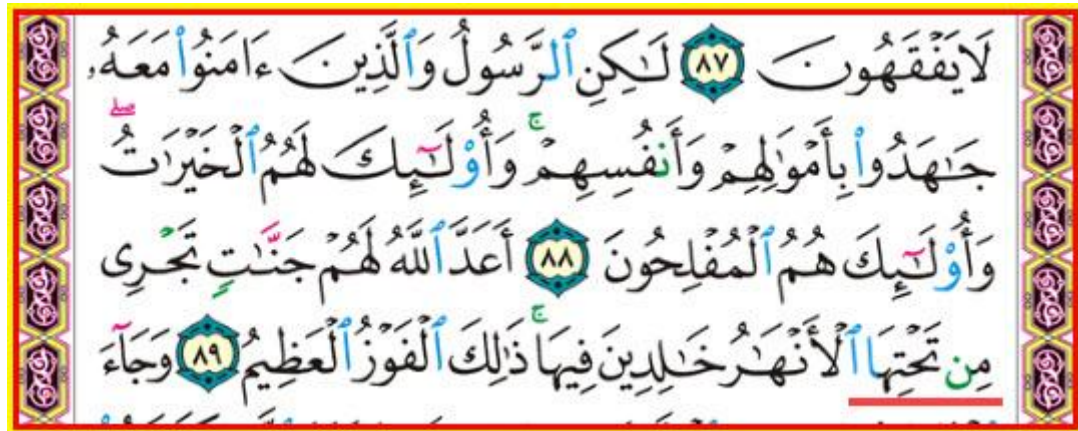 لَا يَفْقَهُونَ ٨٧ لَٰكِنِ ٱلرَّسُولُ وَٱلَّذِينَ ءَامَنُوا۟ مَعَهُۥ
جَٰهَدُوا۟ بِأَمْوَٰلِهِمْ وَأَنفُسِهِمْ ۚ وَأُو۟لَٰٓئِكَ لَهُمُ ٱلْخَيْرَٰتُ ۖ
وَأُو۟لَٰٓئِكَ هُمُ ٱلْمُفْلِحُونَ ٨٨ أَعَدَّ ٱللَّهُ لَهُمْ جَنَّٰتٍ تَجْرِى
مِن تَحْتِهَا ٱلْأَنْهَٰرُ خَٰلِدِينَ فِيهَا ۚ ذَٰلِكَ ٱلْفَوْزُ ٱلْعَظِيمُ ٨٩ وَجَآءَ